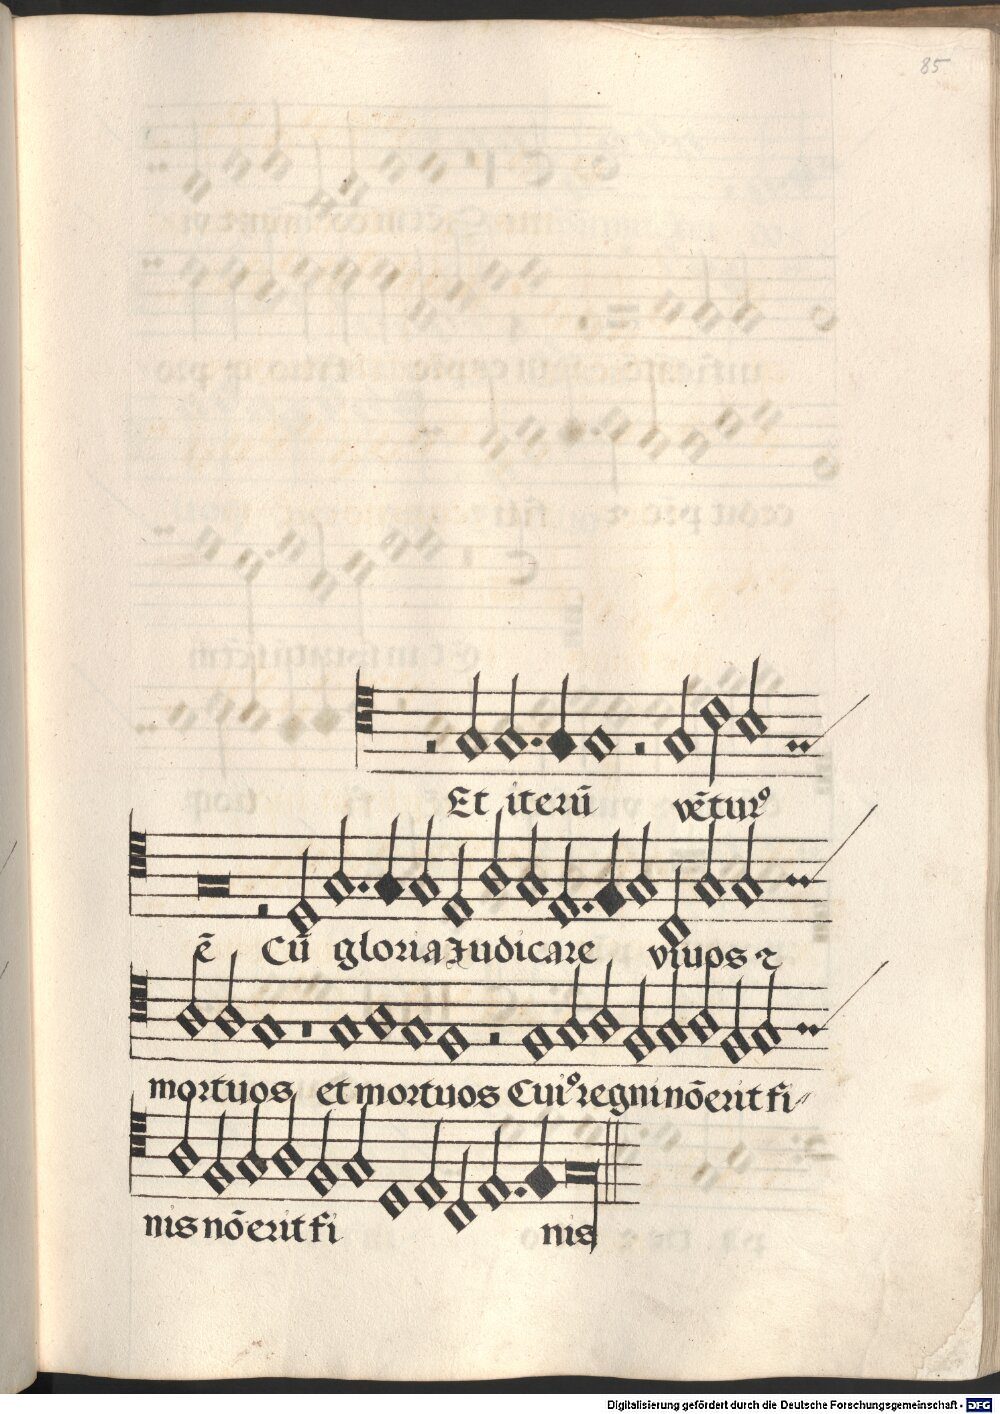 85
Et iterū vētur⁹
ē Cū gloria Iudicare viuos ⁊
mortuos et mortuos Cui⁹ regni nō erit fi
nis nō erit fi nis
Digitalisierung gefördert durch die Deutsche Forschungsgemeinschaft - DFG